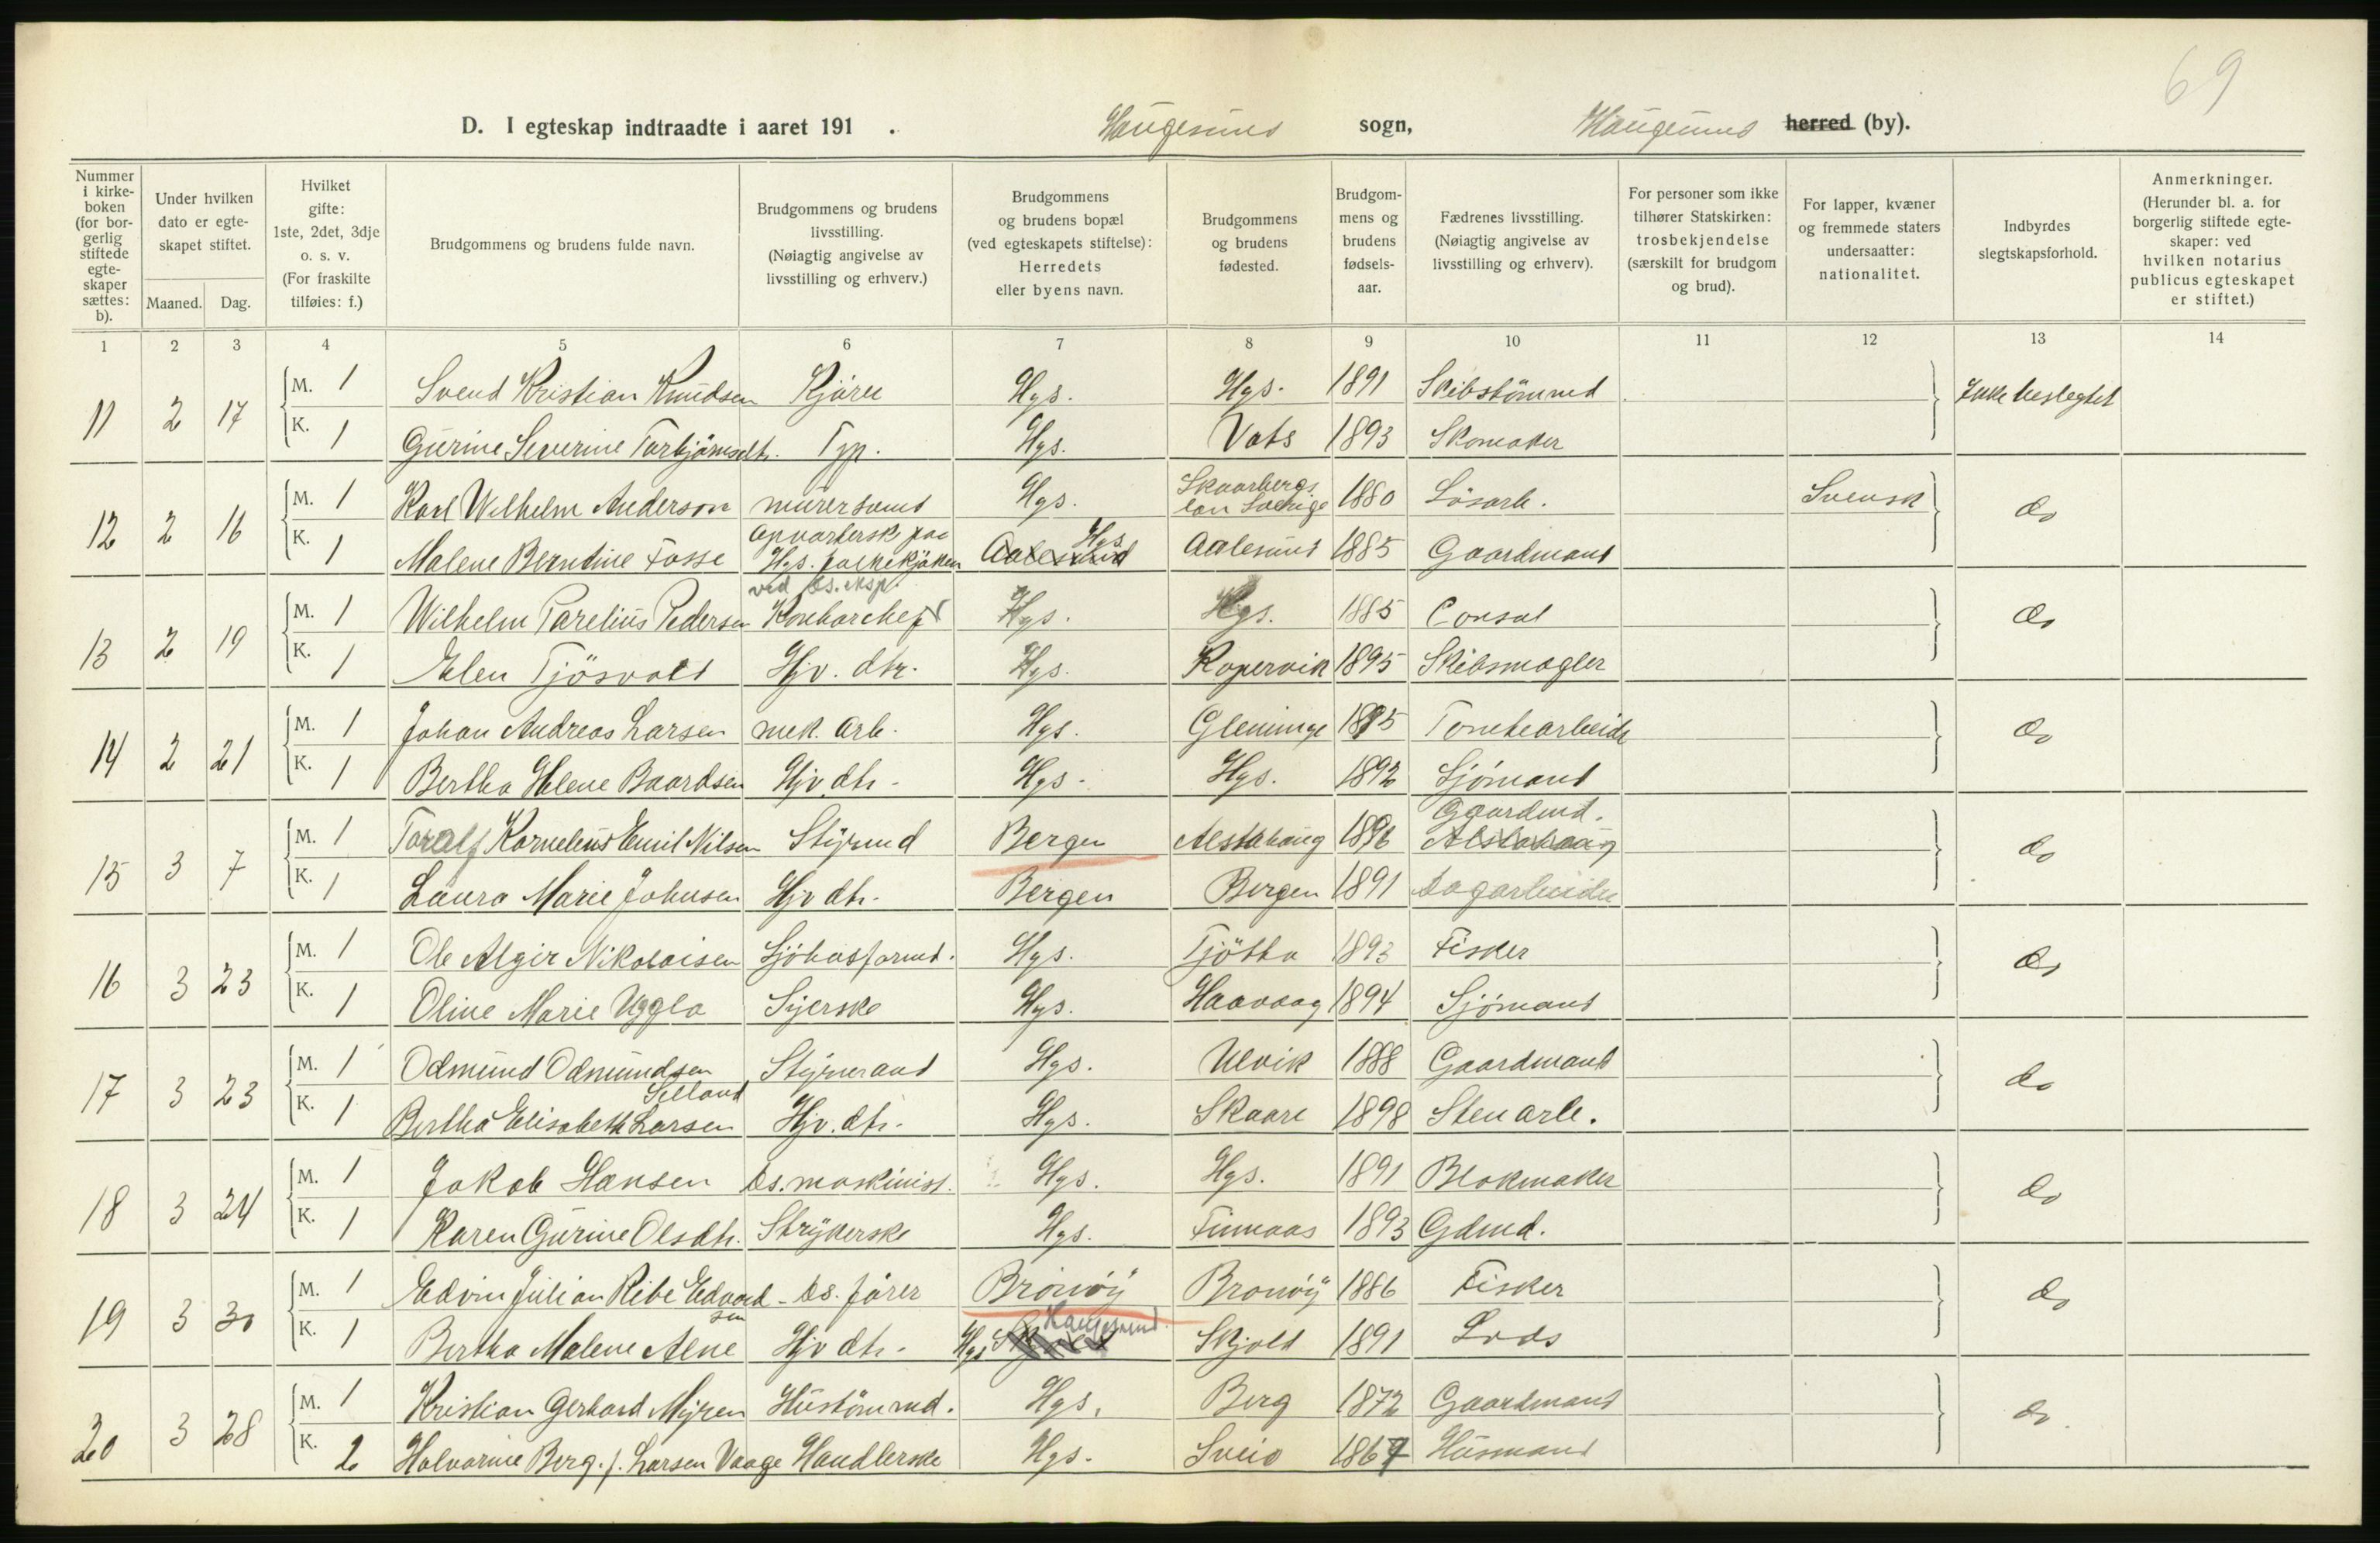 69
D. I egteskap indtraadte i aaret 191 . Haugesund sogn, Haugesund herred (by).
Nummer i kirkeboken (for borgerlig stiftede egteskaper sættes: b).
Under hvilken dato er egteskapet stiftet. Maaned. Dag.
Hvilket gifte: 1ste, 2det, 3dje o. s. v. (For fraskilte tilføies: f.)
Brudgommens og brudens fulde navn.
Brudgommens og brudens livsstilling. (Nøiagtig angivelse av livsstilling og erhverv.)
Brudgommens og brudens bopæl (ved egteskapets stiftelse): Herredets eller byens navn.
Brudgommens og brudens fødested.
Brudgommens og brudens fødselsaar.
Fædrenes livsstilling. (Nøiagtig angivelse av livsstilling og erhverv).
For personer som ikke tilhører Statskirken: trosbekjendelse (særskilt for brudgom og brud).
For lapper, kvæner og fremmede staters undersaatter: nationalitet.
Indbyrdes slegtskapsforhold.
Anmerkninger. (Herunder bl. a. for borgerlig stiftede egteskaper: ved hvilken notarius publicus egteskapet er stiftet.)
1 2 3 4 5 6 7 8 9 10 11 12 13 14
11 2 17 M. 1 Svend Kristian Knudsen Kjører Hgs. Hgs. 1891 Skibstömmd Ikke beslegtet
K. 1 Gurine Severine Torbjörnsdtr. Typ. Hgs. Vats 1893 Skomaker
12 2 16 M. 1 Karl Wilhelm Anderson murersvend Hgs. Skaarbergs län Sverige 1880 Lösarb. Svensk do
K. 1 Malene Berntine Fosse Opvartersk paa Hgs. folkekjøken Aalesund Hgs Aalesund 1885 Gaardmand
13 2 19 M. 1 Wilhelm Parelius Pedersen ved ds. eksp Kontorchef Hgs. Hgs. 1885 Consul do
K. 1 Elen Tjösvold Hjv. dtr. Hgs. Kopervik 1895 Skibsmægler
14 2 21 M. 1 Johan Andreas Larsen mek. arb. Hgs. Glemminge 1885 Tomtearbeide do
K. 1 Bertha Helene Baardsen Hjv. dtr. Hgs. Hgs. 1892 Sjömand
15 3 7 M. 1 Toralf Kornelius Emil Nilsen Styrmd Bergen Alstahaug 1896 Gaardmd. Alstahaug do
K. 1 Laura Marie Johnsen Hjv dtr. Bergen Bergen 1891 Dagarbeider
16 3 23 M. 1 Ole Algir Nikolaisen Sjöhusformd. Hgs. Tjötta 1893 Fisker do
K. 1 Oline Marie Uggla Syerske Hgs. Haavaag 1894 Sjömand
17 3 23 M. 1 Odmund Odmundsen Styrmand Hgs. Ulvik 1888 Gaardmand do
K. 1 Bertha Elisabeth Larsen Selland Hjv. dtr. Hgs. Skaare 1898 Stenarb.
18 3 24 M. 1 Jakob Hansen Ds. maskinist. Hgs. Hgs. 1891 Blokmaker do
K. 1 Karen Gurine Olsdtr. Strykerske Hgs. Finnaas 1893 Gdmd.
19 3 30 M. 1 Edvin Julian Ribe Edvardsen Ds. fører Bronöy Bronöy 1886 Fisker do
K. 1 Bertha Malene Alne Hjv dtr. Hgs Skjold Haugesund. Skjold 1891 Lods
20 3 28 M. 1 Kristian Gerhard Myren Hustömmd. Hgs. Berg 1872 Gaardmand do.
K. 2 Halvorine Berg f. Larsen Vaage Handlerske Hgs. Sveio 1867 Husmand